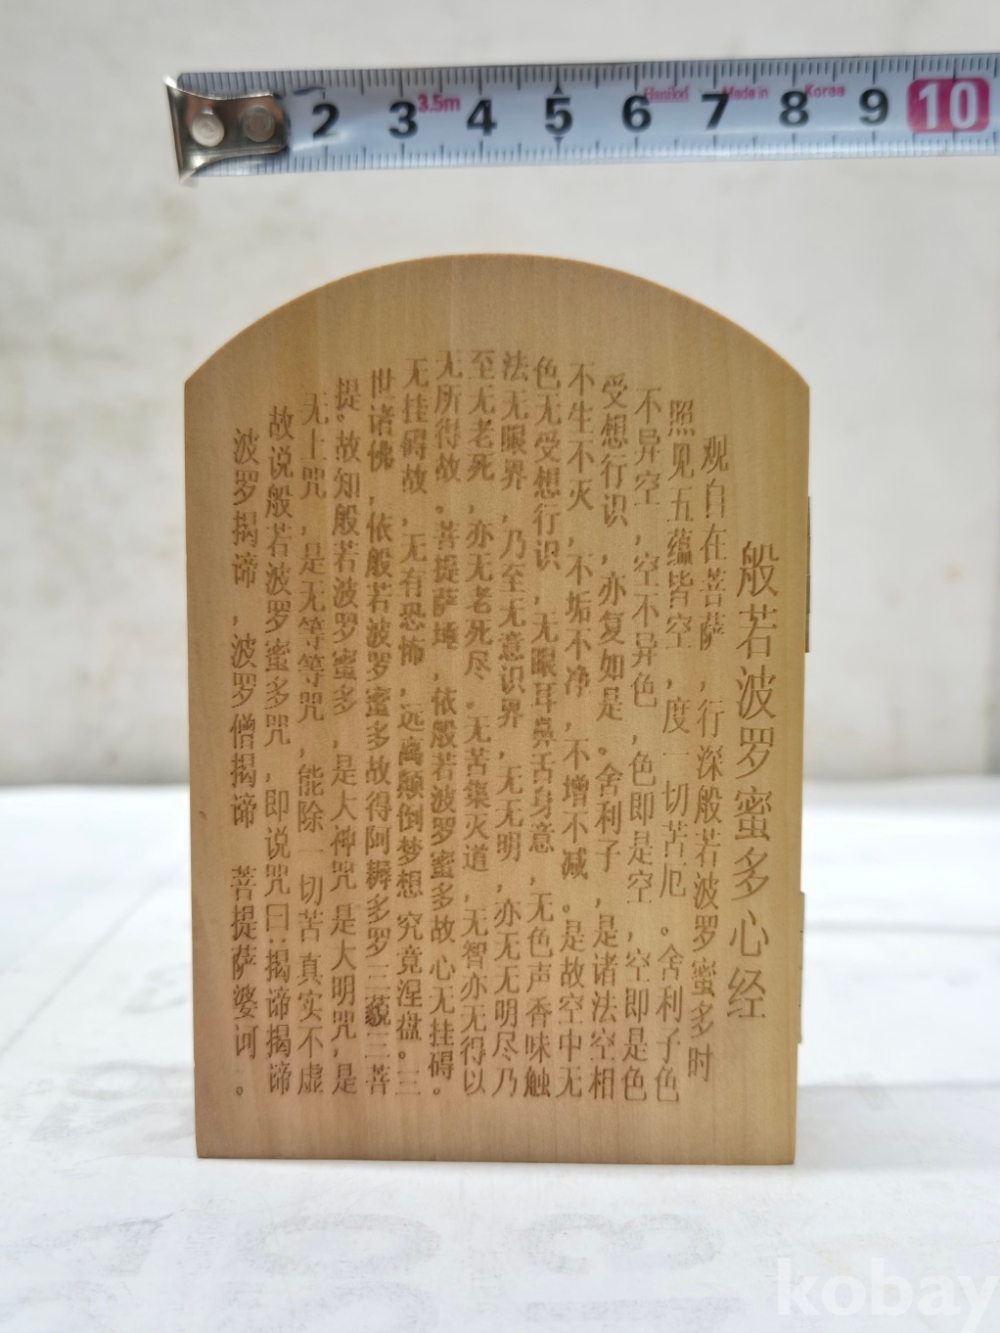 2 3 3.5m 4 5 6 Hanikei 7 Made in 8 Korea 9 10
般若波罗蜜多心经
观自在菩萨,行深般若波罗蜜多时
照见五蕴皆空,度一切苦厄。舍利子色
不异空,空不异色,色即是空,空即是色
受想行识,亦复如是。舍利子,是诸法空相
不生不灭,不垢不净,不增不减。是故空中无
色无受想行识,无眼耳鼻舌身意,无色声香味触
法无眼界,乃至无意识界,无无明,亦无无明尽乃
至无老死,亦无老死尽。无苦集灭道,无智亦无得以
无所得故。菩提萨埵,依般若波罗蜜多故心无挂碍。
无挂碍故,无有恐怖,远离颠倒梦想究竟涅盘。三
世诸佛,依般若波罗蜜多故得阿耨多罗三藐三菩
提。故知般若波罗蜜多,是大神咒是大明咒,是
无上咒,是无等等咒,能除一切苦真实不虚
故说般若波罗蜜多咒,即说咒曰:揭谛揭谛
波罗揭谛,波罗僧揭谛 菩提萨婆诃。
kobay